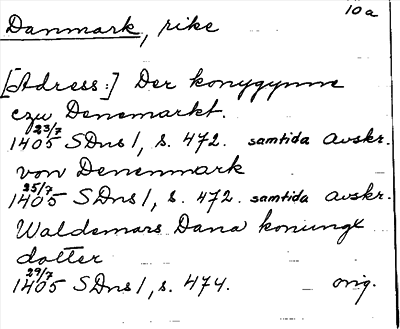 10a
Danmark, rike
[Adress:] Der konygynne
czu Denemarkt.
23/7
1405 SDns 1, s. 472. samtida Avskr.
von Denenmark
25/7
1405 SDns 1, s. 472. samtida Avskr.
Waldemars Dana konungx
dotter
29/7
1405 SDns 1, s. 474. orig.